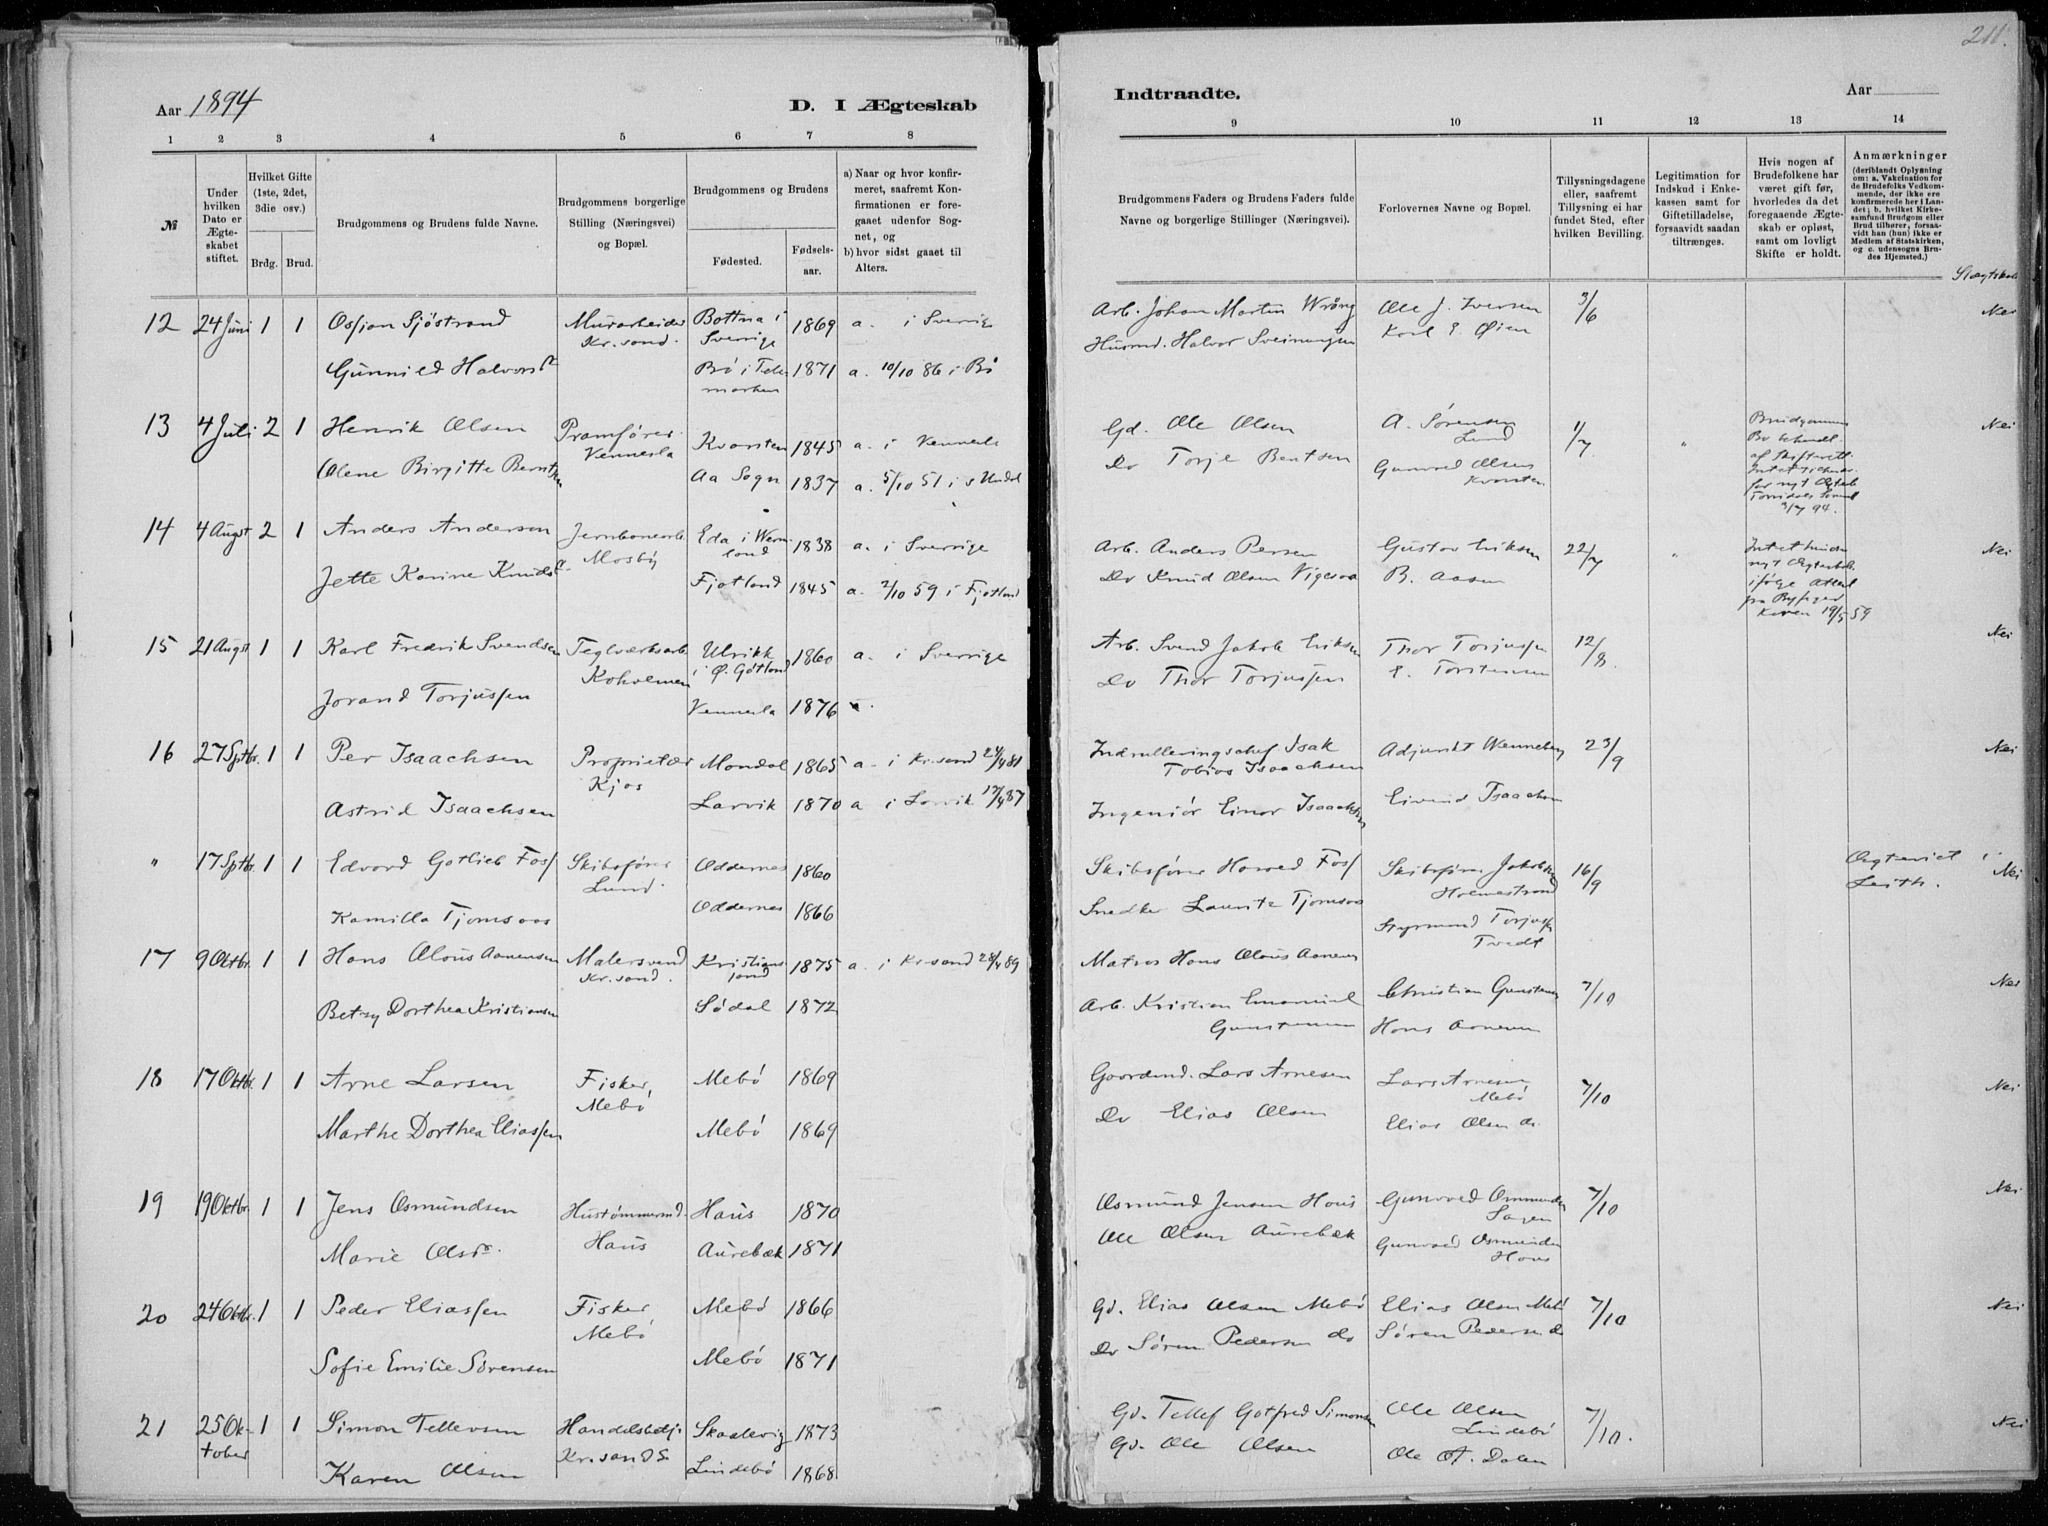 211.
Aar 1894
D. I Ægteskab
Indtraadte.
Aar
1 2 3 4 5 6 7 8
9 10 11 12 13 14
№
Under hvilken Dato er Ægteskabet stiftet.
Hvilket Gifte (1ste, 2det, 3die osv.)
Brdg. Brud.
Brudgommens og Brudens fulde Navne.
Brudgommens borgerlige Stilling (Næringsvei) og Bopæl.
Brudgommens og Brudens
Fødested.
Fødselsaar.
a) Naar og hvor konfirmeret, saafremt Konfirmationen er foregaaet udenfor Sognet, og
b) hvor sidst gaaet til Alters.
Brudgommens Faders og Brudens Faders fulde Navne og borgerlige Stillinger (Næringsvei).
Forlovernes Navne og Bopæl.
Tillysningsdagene eller, saafremt Tillysning ei har fundet Sted, efter hvilken Bevilling.
Legitimation for Indskud i Enkekassen samt for Giftetilladelse, forsaavidt saadan tiltrænges.
Hvis nogen af Brudefolkene har været gift før, hvorledes da det foregaaende Ægteskab er opløst, samt om lovligt Skifte er holdt.
Anmærkninger
(deriblandt Oplysning om: a. Vakcination for de Brudefolks Vedkommende, der ikke ere konfirmerede her i Landet; b. hvilket Kirkesamfund Brudgom eller Brud tilhører, forsaavidt han (hun) ikke er Medlem af Statskirken, og c. udensogns Brudes Hjemsted.)
Slægtskab
12 24 Juni 1 1 Osjan Sjöstrand Murarbeider Bottna i 1869 a. i Sverige
Kr.sand. Sverige
Gunnild Halvorsdr Bø i Tele- 1871 a. 10/10 86 i Bø
marken
Arb. Johan Martin Wrång Ole J. Iversen 3/6 Nei
Husmd. Halvor Sveinungsen Karl E. Øien
13 4 Juli 2 1 Henrik Olsen Pramfører Kvarsten 1845 a. i Vennesla
Vennesla
Olene Birgitte Berntsen Aa Sogn 1837 a. 5/10 51 i s Undal
Gd. Ole Olsen A. Sørensen 1/7 " Brudgommens Nei
Lund Bo behandl
Do Torje Bentsen Gunvald Olsen af Skifterett
Kvarsten Intet
for nyt Ægtesk
3/7 94.
14 4 Augst 2 1 Anders Anderson Jernbanearb. Eda i Werm- 1838 a. i Sverrige
Mosby land
Jette Karine Knudsdr. Fjotland 1845 a. 2/10 59 i Fjotland
Arb. Anders Persen Gustav Eriksen 22/7 " Intet Nei
Do Knud Olsen Vigesaa B. Aasen nyt Ægteskab
ifølge Attest
fra Byfoged
19/5 59
15 21 Augst 1 1 Karl Fredrik Svendsen Teglværksarb. Ulrikk 1860 a. i Sverrige
Kokleimen i Ø. Götland
Jorand Torjussen Vennesla 1876
Arb. Svend Jakob Eriksen Thor Torjussen 12/8. Nei
Do Thor Torjussen E. Torstensen
16 27 Sptbr. 1 1 Per Isaachsen Proprietær Mandal 1865 a. i Kr.sand 24/4 81
Kjos
Astrid Isaachsen Larvik 1870 a i Larvik 17/4 87
Indrulleringschef Isak Adjunkt Wenneberg 23/9 Nei
Tobias Isaachsen
Ingeniør Einar Isaachsen Eivind Isaachsen
" 17 Sptbr. 1 1 Edvard Gotlieb Foss Skibsfører Oddernes 1860
Lund.
Kamilla Tjomsaas Oddernes 1866
Skibsfører Harved Foss Skibsfører Jakobsen 16/9 Ægteviet i Nei
Holmestrand Leith.
Snedker Lauritz Tjomsaas Styrmand Torjussen
Tvedt
17 9 Oktbr. 1 1 Hans Olaus Aanensen Malersvend Kristians- 1875 a. i Kr.sand 28/4 89
Kr.sand. sand
Betzy Dorthea Kristiansen Sødal 1872
Matros Hans Olaus Aanensen
Arb. Kristian Emanuel Christian Gunstensen 7/10 Nei
Gunstensen Hans Aanensen
18 17 Oktbr. 1 1 Arne Larsen Fisker Mebø 1869
Mebø
Marthe Dorthea Eliassen Mebø 1869
Gaardmd. Lars Arnesen Lars Arnesen 7/10 Nei
Mebø
Do Elias Olsen Elias Olsen do.
19 19 Oktbr. 1 1 Jens Osmundsen Hustømmermd. Haus 1870
Haus
Marie Olsdr. Aurebæk 1871
Osmund Jensen Haus Gunvald Ommundsen 7/10 Nei
Sagen
Ole Olsen Aurebæk Gunvald Osmundsen
Haus
20 24 Oktbr. 1 1 Peder Eliassen Fisker Mebø 1866
Mebø
Sofie Emilie Sørensen Mebø 1871
Gd. Elias Olsen Mebø Elias Olsen Mebø 7/10 Nei
Do Søren Pedersen do Søren Pedersen do
21 25 Ok- 1 1 Simon Tellevsen Handelsbetj. Skaalevig 1873
tober Kr.sand S.
Karen Olsen Lindebø 1868
Gd. Tellef Gotfred Simonsen Ole Olsen 7/10. Nei
Lindebø
Gd. Ole Olsen Ole A. Dalen